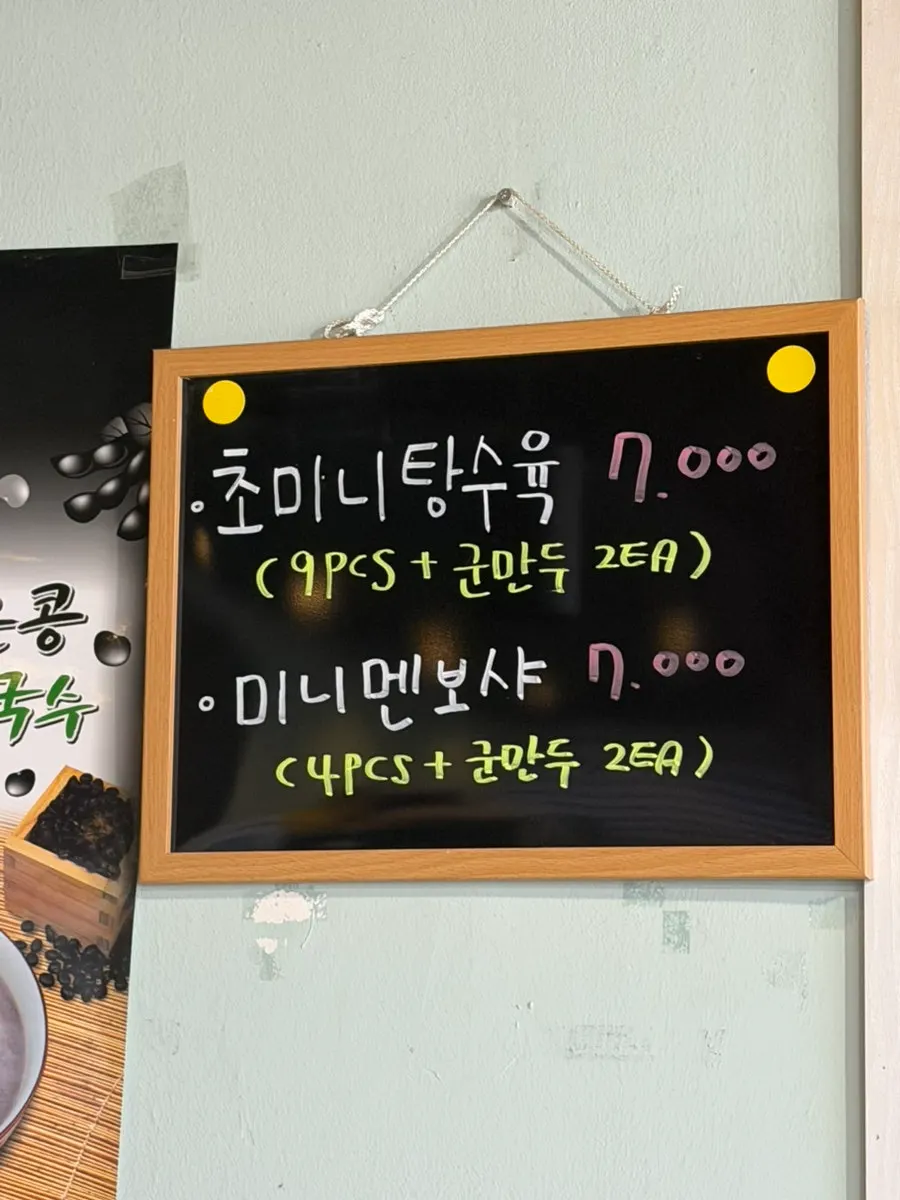 ·초미니탕수육 7.000
(9PCS + 군만두 2EA)
·미니멘보샤 7.000
(4PCS + 군만두 2EA)
콩
국수